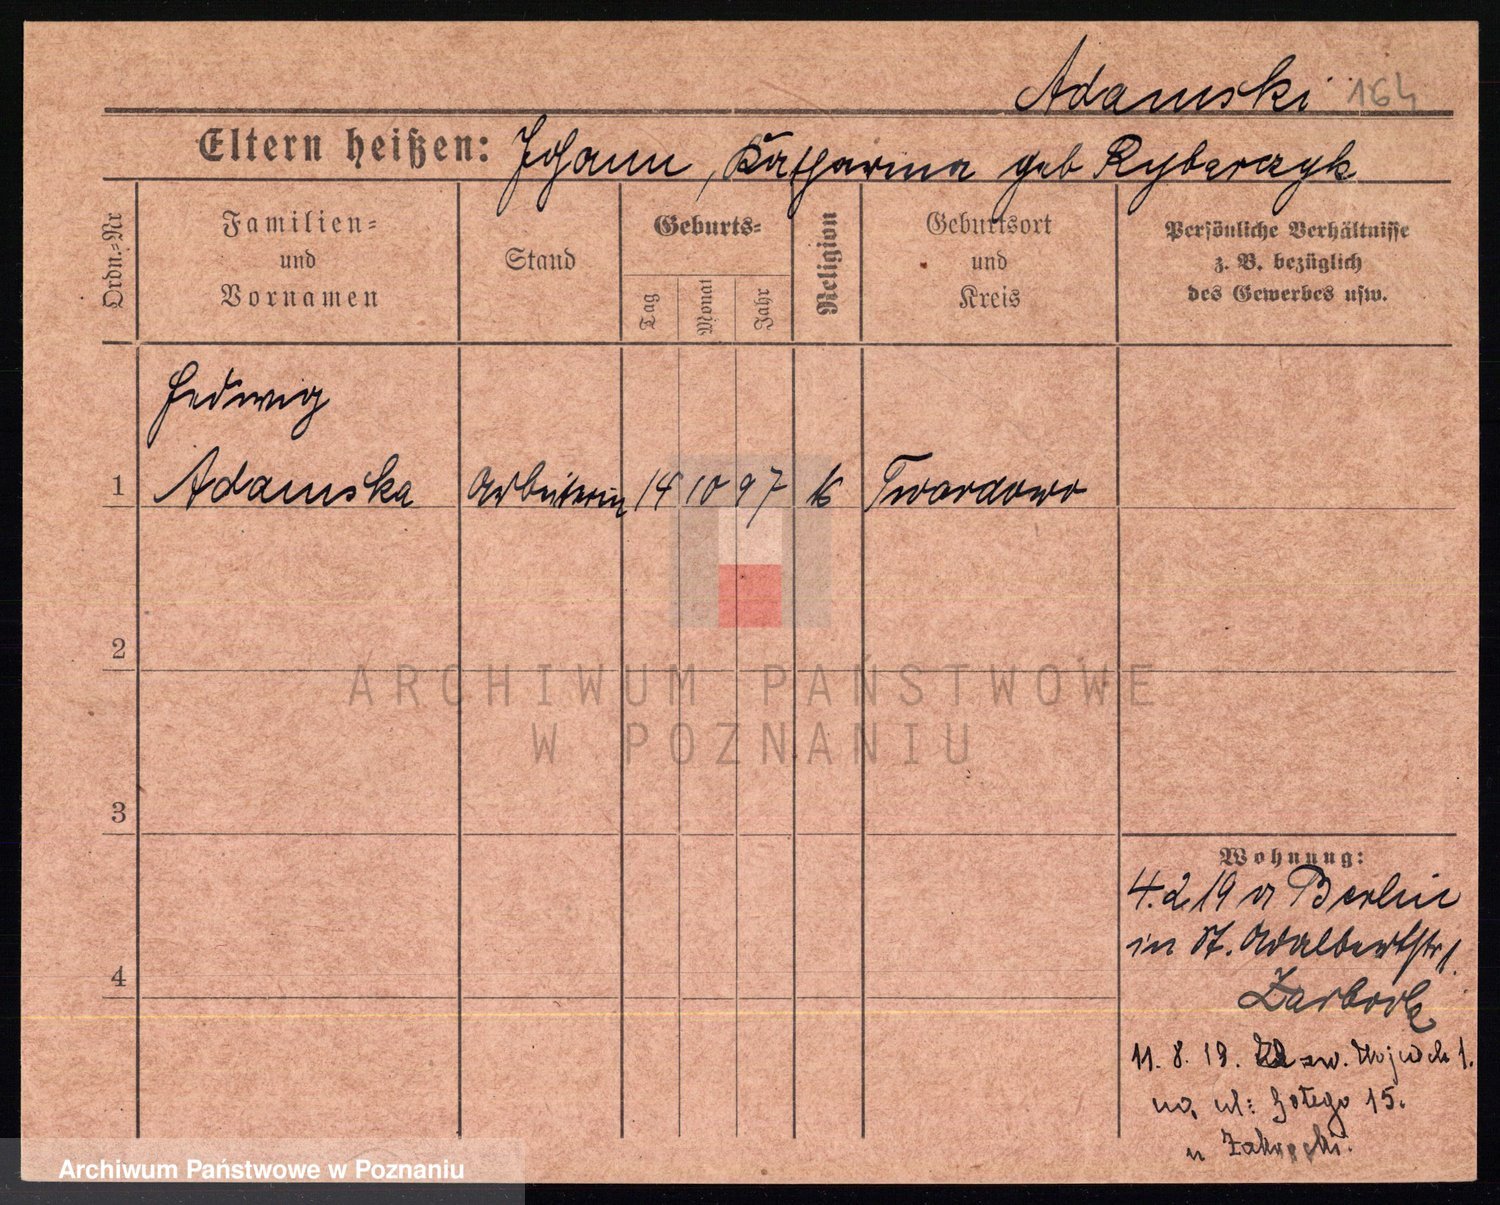 Adamski 164
Eltern heißen: Johann, Katharina geb Ryberczyk
Ordn.=Nr
Familien=
und
Vornamen
Stand
Geburts=
Tag
Monat
Jahr
Religion
Geburtsort
und
Kreis
Persönliche Verhältnisse
z. B. bezüglich
des Gewerbes usw.
Hedwig
1 Adamska Arbeiterin 14 10 97 k Twardowo
2
3
4
Wohnung:
4.2.19 v Berlin
in St. Adalbertstr 1.
11. 8. 19. św. Wojciech 1.
na ul: 15.
u
ARCHIWUM PAŃSTWOWE
W POZNANIU
Archiwum Państwowe w Poznaniu